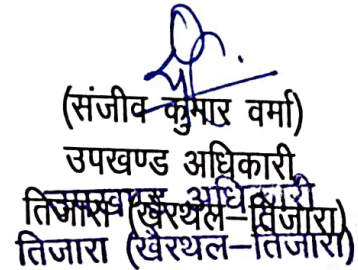 (संजीव कुमार वर्मा)
उपखण्ड अधिकारी
उपखण्ड अधिकारी
तिजारा (खैरथल–तिजारा)
तिजारा (खैरथल–तिजारा)